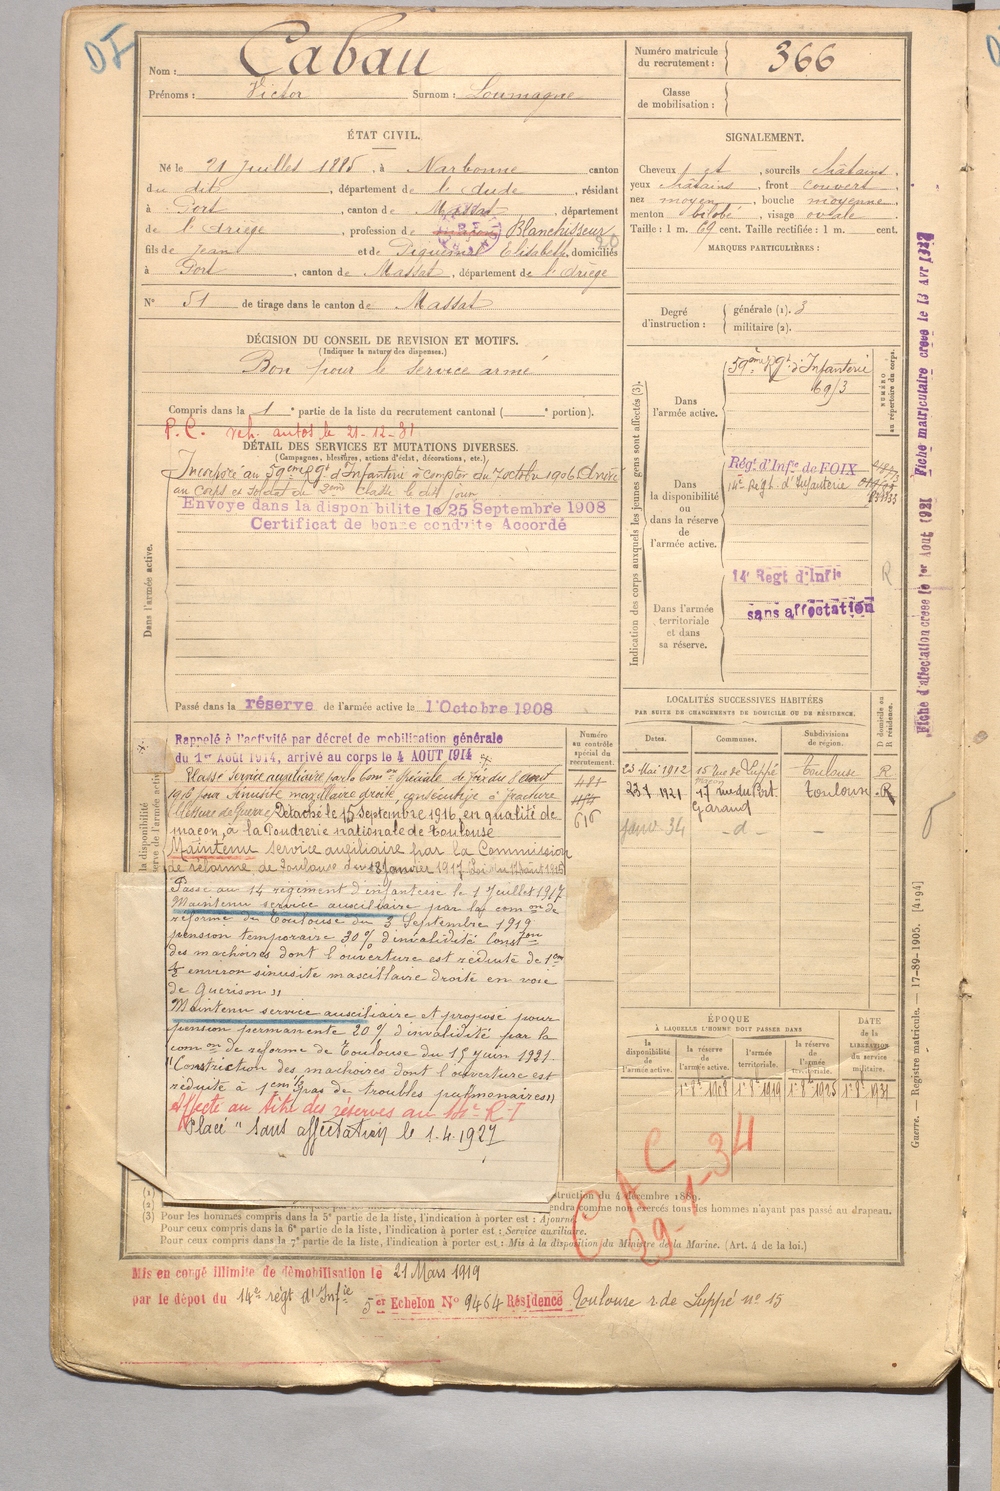 Nom : Cabau
Prénoms : Victor Surnom : Loumagne
Numéro matricule du recrutement : 366
Classe de mobilisation :
ÉTAT CIVIL.
Né le 21 Juillet 1885, à Narbonne canton
du dit, département de l'Aude, résidant
à Port, canton de Massat, département
de l'Ariège, profession de Blanchisseur
fils de Jean et de Piquemal Elisabeth, domiciliés
à Port, canton de Massat, département de l'Ariège
N° 51 de tirage dans le canton de Massat
SIGNALEMENT.
Cheveux et, sourcils châtains,
yeux châtains, front couvert
nez moyen, bouche moyenne
menton bilobé, visage ovale
Taille : 1 m. 69 cent. Taille rectifiée : 1 m. cent.
MARQUES PARTICULIÈRES :
Degré d'instruction : générale (1). 3
militaire (2).
DÉCISION DU CONSEIL DE REVISION ET MOTIFS.
(Indiquer la nature des dispenses.)
Bon pour le service armé
Compris dans la 1e partie de la liste du recrutement cantonal ( e portion).
P.C. veh. autos le 21-12-31
DÉTAIL DES SERVICES ET MUTATIONS DIVERSES.
(Campagnes, blessures, actions d'éclat, décorations, etc.)
Incorporé au 59ème Rgt d'Infanterie à compter du 7 octobre 1906 Arrivé
au corps et soldat de 2ème classe le dit jour
Envoye dans la disponibilite le 25 Septembre 1908
Certificat de bonne conduite Accordé
Dans l'armée active.
Passé dans la réserve de l'armée active le 1 Octobre 1908
Indication des corps auxquels les jeunes gens sont affectés (3).
Dans l'armée active.
59ème Rgt d'Infanterie
69/3
NUMÉRO au répertoire du corps.
Dans la disponibilité ou dans la réserve de l'armée active.
Régt d'Infie de FOIX
14e Régt. d'Infanterie
Dans l'armée territoriale et dans sa réserve.
14e Regt d'Infie
sans affectation
R
Fiche d'affectation creee le 1er Aout 1921 Fiche matriculaire creee le 13 Avr
LOCALITÉS SUCCESSIVES HABITÉES
PAR SUITE DE CHANGEMENTS DE DOMICILE OU DE RÉSIDENCE.
Dates. Communes. Subdivisions de région. D domicile ou R résidence.
23 Mai 1912 15 Rue de Luppé Toulouse R
1921 17 rue du Port Garaud Toulouse R
Janv. 34 -d- -
Rappelé à l'activité par décret de mobilisation générale
du 1er Août 1914, arrivé au corps le 4 AOUT 1914
Numéro au contrôle spécial du recrutement.
616
Classé Service auxiliaire par la Comon spéciale de Foix du 8 août
1916 pour sinusite maxillaire droite, consécutive à fracture
Blessure de Guerre. Détaché le 15 Septembre 1916, en qualité de
maçon, à la Poudrerie nationale de Toulouse
Maintenu service auxiliaire par la Commission
de réforme de Toulouse du 18 Janvier 1917
Passé au 14 régiment d'infanterie le 1 Juillet 1917
Maintenu service auxiliaire par la comon de
réforme de Toulouse du 3 Septembre 1919
pension temporaire 30% d'invalidité Conston
des machoires dont l'ouverture est réduite de 1cm
½ environ sinusite mascillaire droite en voie
de Guerison "
Maintenu service auxciliaire et proposé pour
pension permanente 20% d'invalidité par la
comon de reforme de Toulouse du 15 Juin 1921
"Constriction des machoires dont l'ouverture est
réduite à 1cm ½ pas de troubles pulmonaires"
Affecté au titre des réserves au R.I
Placé " Sans affectation le 1.4.1927
ÉPOQUE
À LAQUELLE L'HOMME DOIT PASSER DANS
la disponibilité de l'armée active. la réserve de l'armée active. l'armée territoriale. la réserve de l'armée territoriale. DATE de la LIBÉRATION du service militaire.
1er 8bre 1908 1er 8bre 1919 1er 8bre 1925 1er 8bre 1931
CAC
29-1-34
Guerre. — Registre matricule. — 17-89-1905. [4194]
(1)
struction du 4 décembre 1889.
(2)
endra comme non exercés tous les hommes n'ayant pas passé au drapeau.
(3) Pour les hommes compris dans la 5e partie de la liste, l'indication à porter est : Ajourné
Pour ceux compris dans la 6e partie de la liste, l'indication à porter est : Service auxiliaire.
Pour ceux compris dans la 7e partie de la liste, l'indication à porter est : Mis à la disposition du Ministre de la Marine. (Art. 4 de la loi.)
Mis en congé illimite de démobilisation le 21 Mars 1919
par le dépot du 14e régt d'Infie 5er Echelon N° 9464 Résidence Toulouse r. de Luppé n° 15